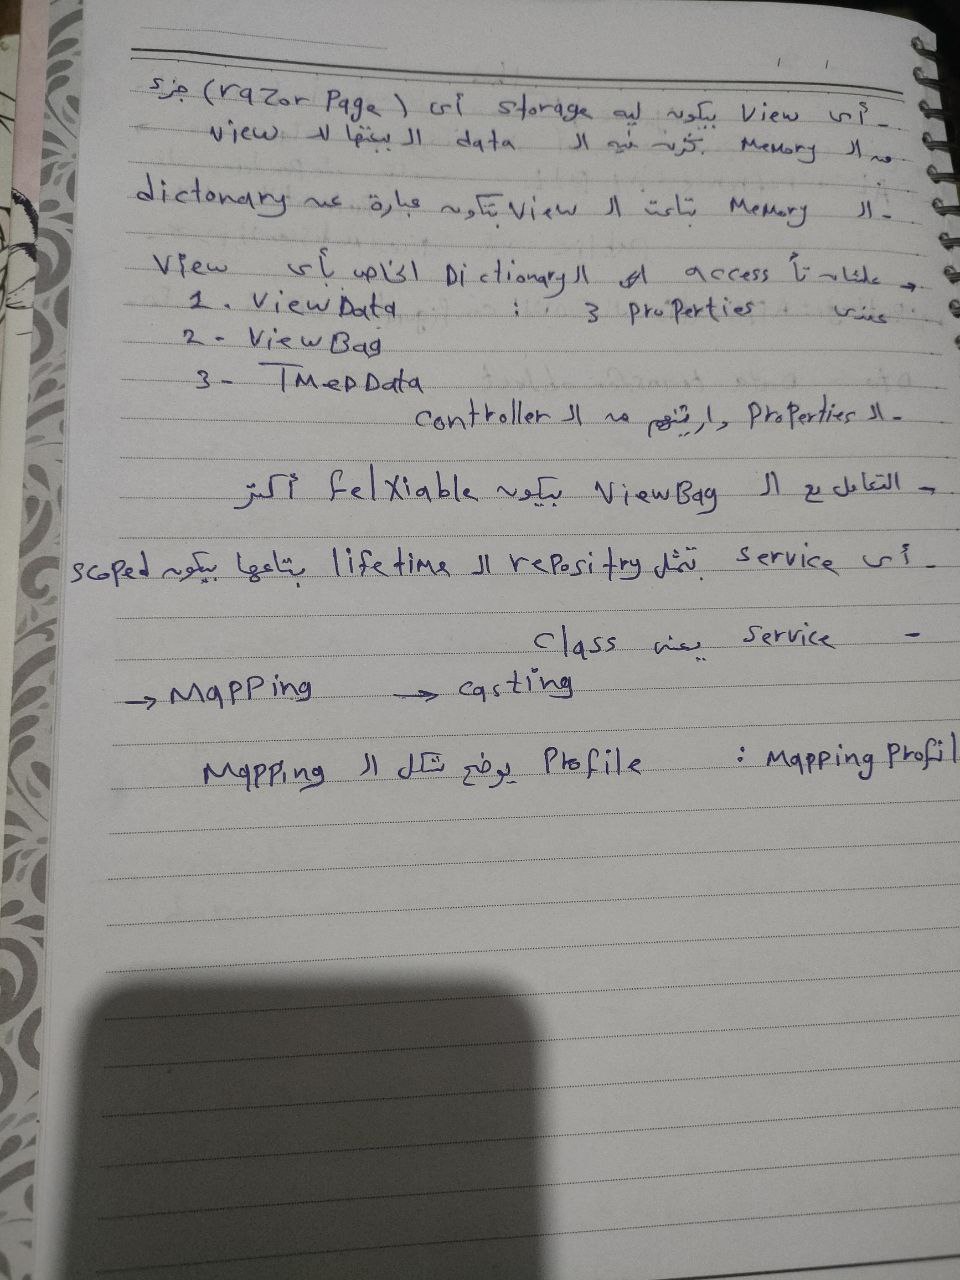 - أى View بيكون ليه storage أى (razor Page) جزء
من الـ Memory بخزن فيه الـ data الـ ببعتها للـ view
- الـ Memory بتاعت الـ View بتكون عبارة عن dictonary
→ علشان access الـ Dictionary الخاص بأى View
عندى 3 properties : 1. ViewData
2- ViewBag
3- TMepData
- الـ Properties دا من الـ Controller
→ التعامل مع الـ ViewBag بيكون felxiable أكتر
- أى service بتمثل repositry الـ lifetime بتاعها بيكون scoped
- Service يعنى Class
→ Mapping → casting
Mapping Profil : Profile يوضح شكل الـ Mapping